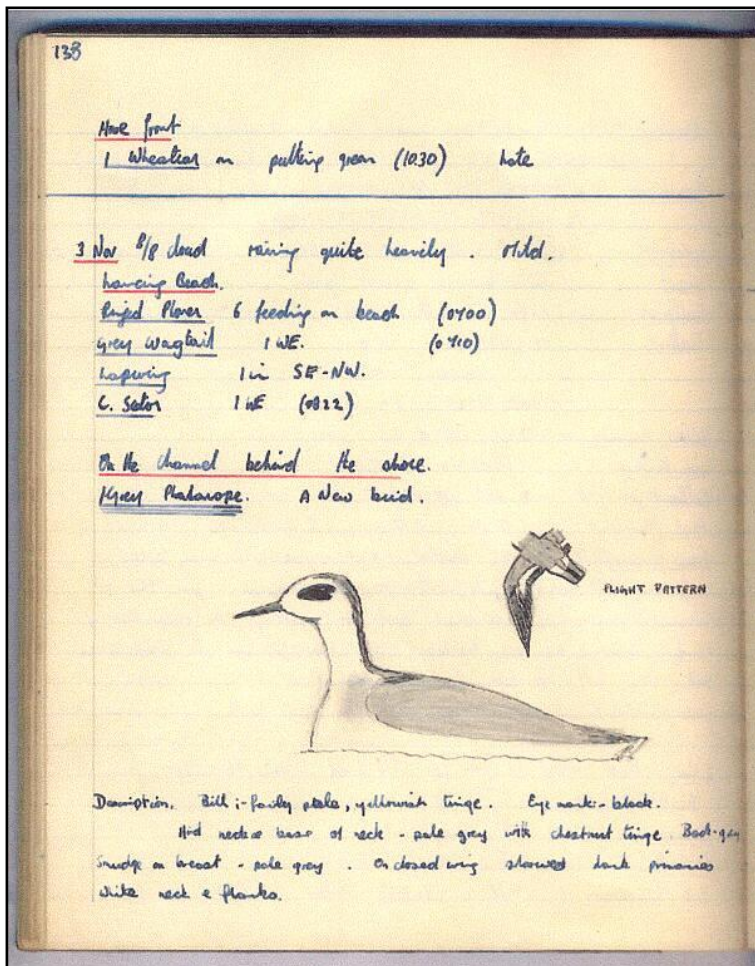 138
Hove front
1 Wheatear on putting green (10.30) Late
3 Nov 8/8 cloud raining quite heavily. Mild.
Lancing Beach.
Ringed Plover 6 feeding on beach (0700)
Grey Wagtail 1 WE. (0710)
Lapwing 1 in SE-NW.
C. Scoter 1 WE (0822)
On the channel behind the shore.
1 Grey Phalarope. A New bird.
FLIGHT PATTERN
Description. Bill :- fairly pale, yellowish tinge. Eye mark:- black.
Hind neck & base of neck - pale grey with chestnut tinge. Back-grey
Smudge on breast - pale grey. On closed wing showed dark primaries
White neck & flanks.